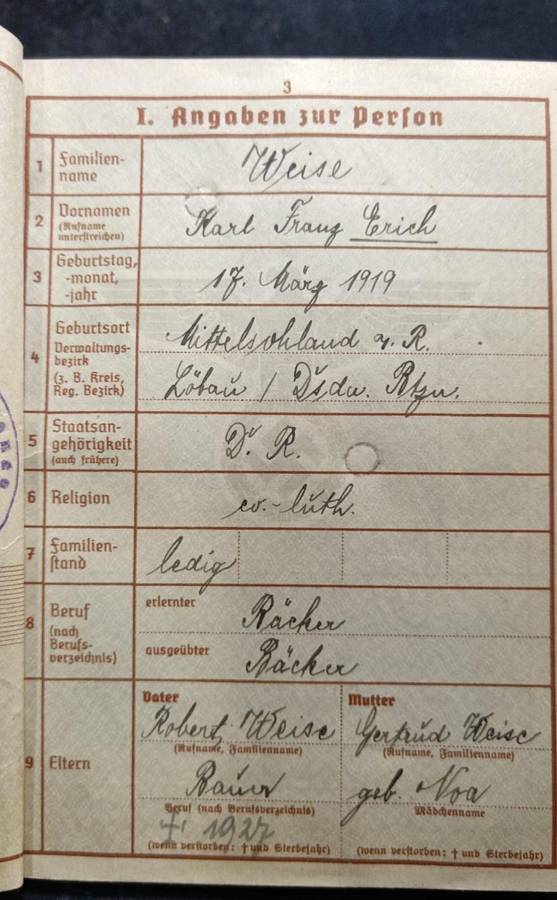 3
I. Angaben zur Person
1 Familien-
name
Weise
2 Vornamen
(Rufname
unterstreichen)
Karl Franz Erich
3 Geburtstag,
-monat,
-jahr
17. März 1919
4 Geburtsort
Verwaltungs-
bezirk
(z. B. Kreis,
Reg. Bezirk)
Mittelsohland a. R.
Löbau / Dsdn. Btzn.
5 Staatsan-
gehörigkeit
(auch frühere)
D. R.
6 Religion
ev.-luth.
7 Familien-
stand
ledig
8 Beruf
(nach
Berufs-
verzeichnis)
erlernter
Bäcker
ausgeübter
Bäcker
9 Eltern
Vater
Robert Weise
(Rufname, Familienname)
Bauer
Beruf (nach Berufsverzeichnis)
† 1927
(wenn verstorben: † und Sterbejahr)
Mutter
Gertrud Weise
(Rufname, Familienname)
geb. Noa
Mädchenname
(wenn verstorben: † und Sterbejahr)